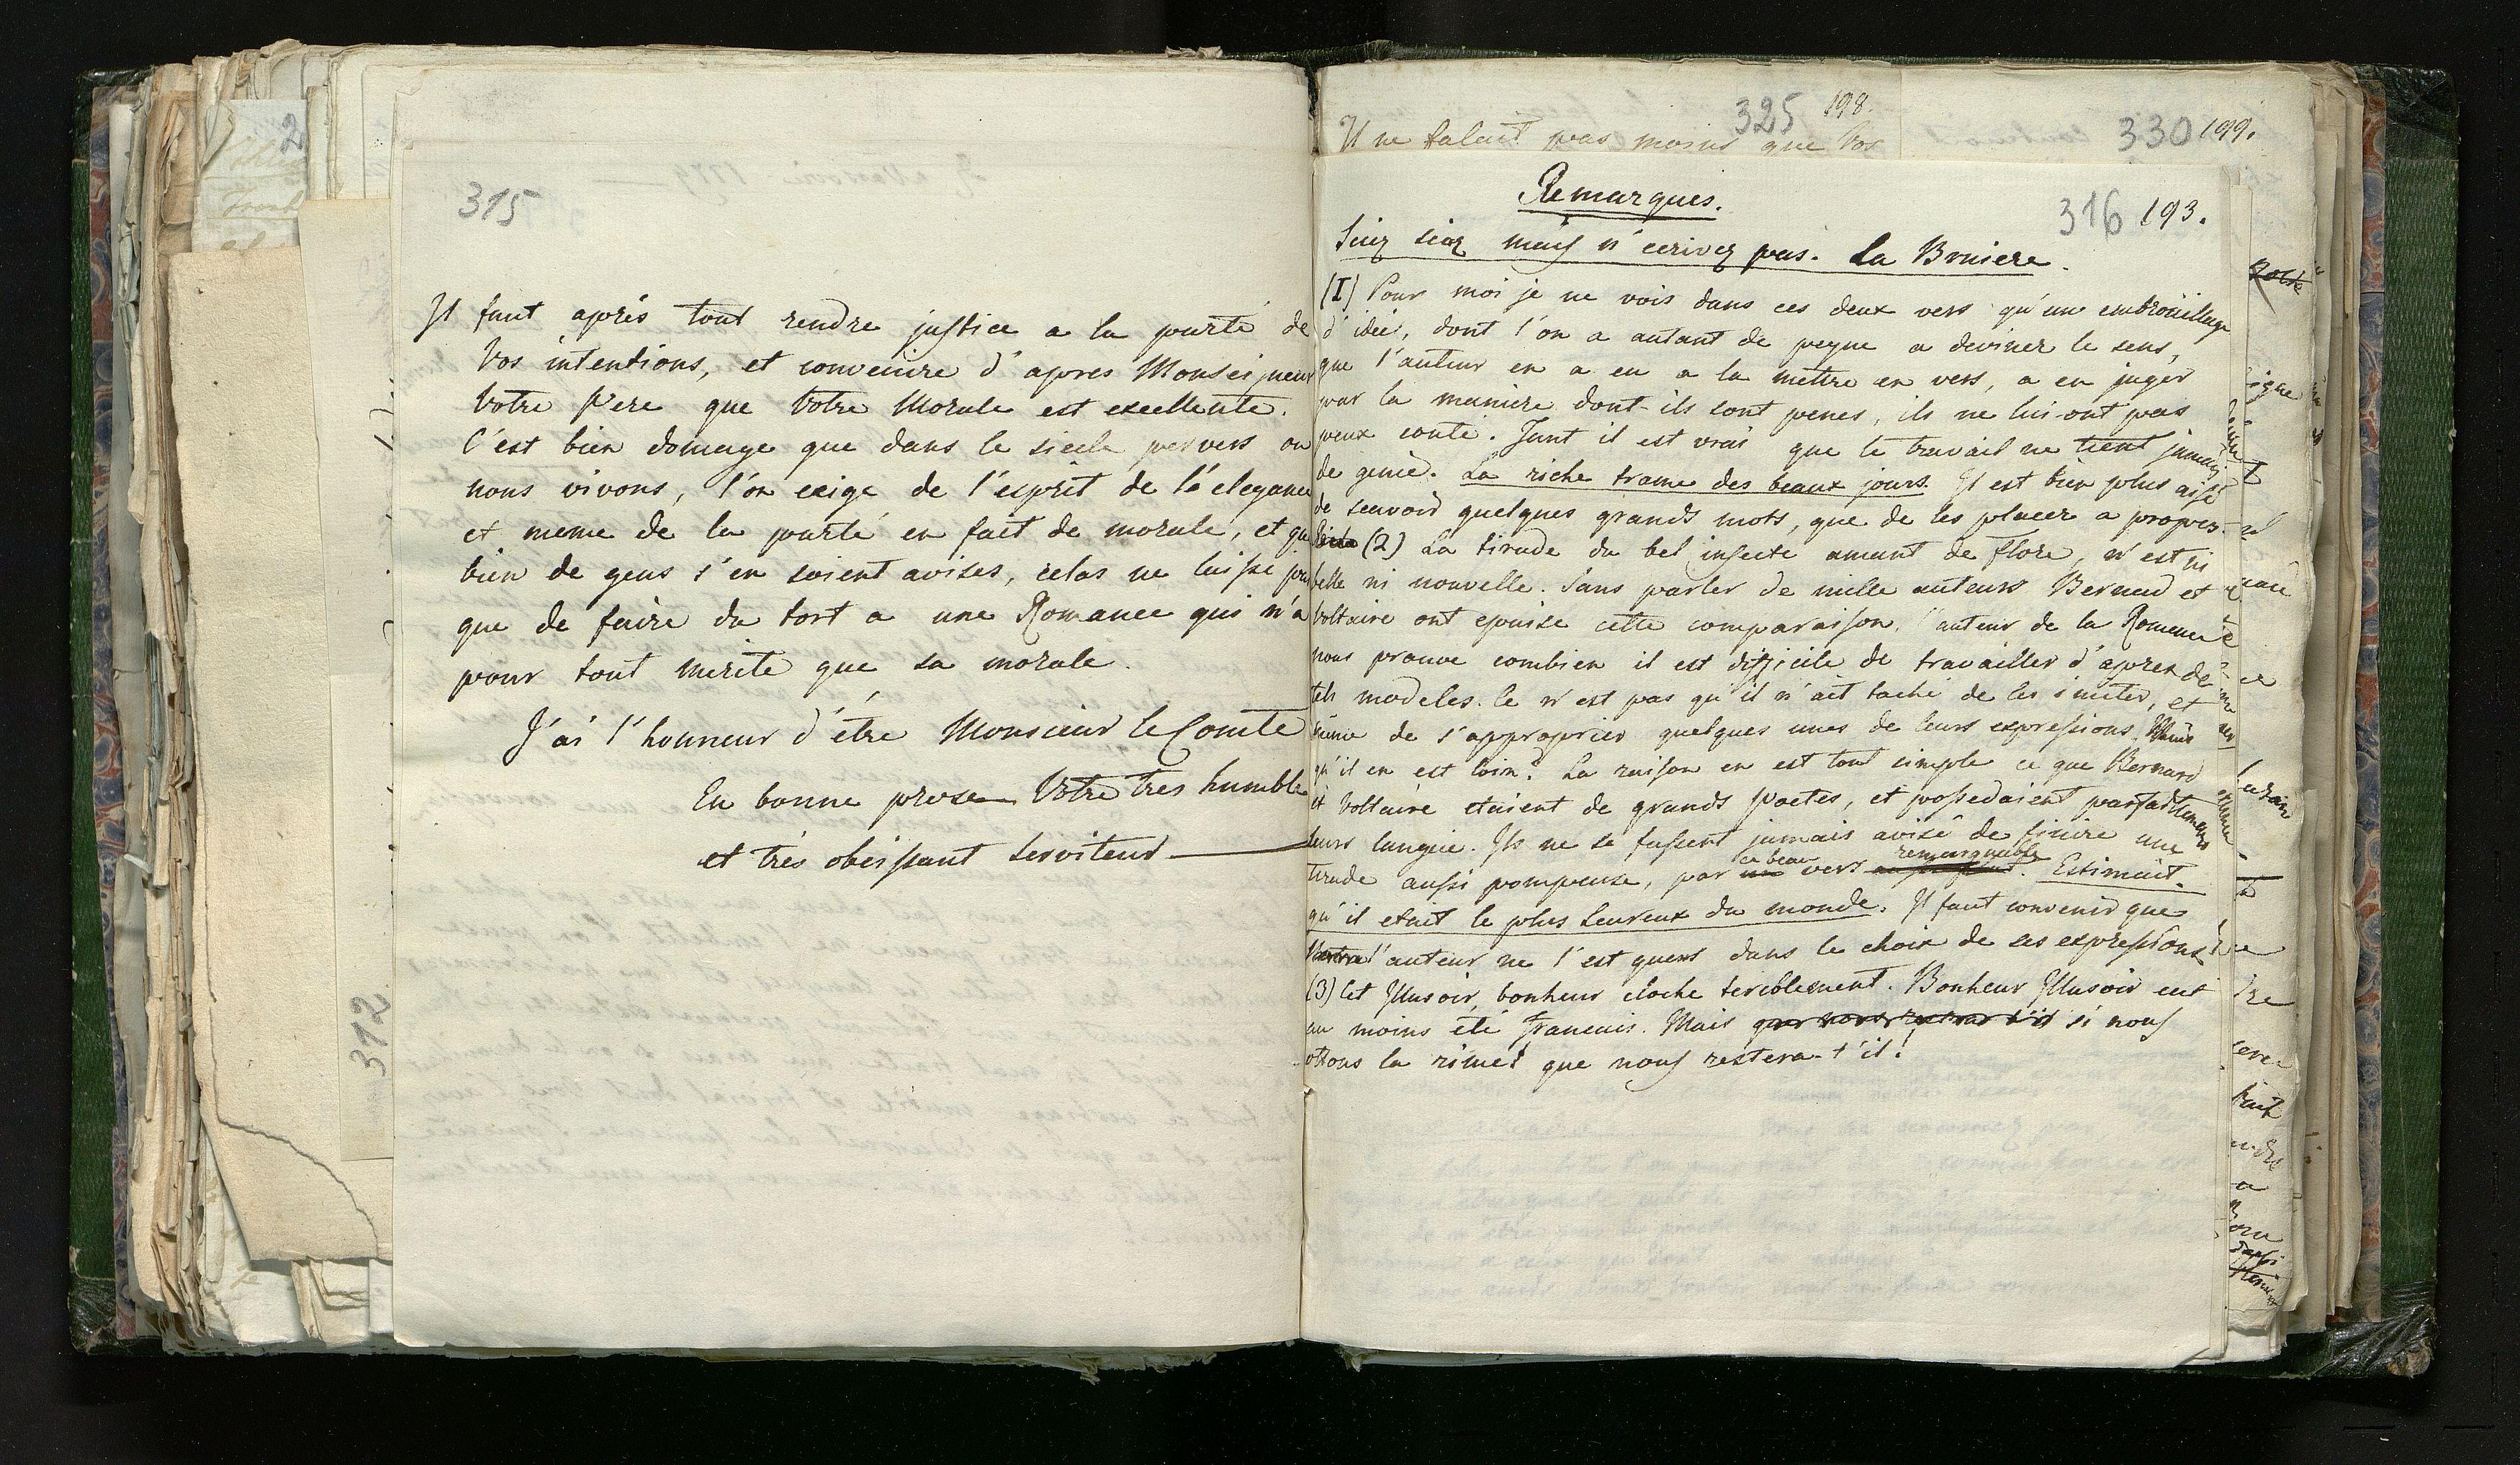 315
Il faut aprés tout rendre justice a la purté de
Vos intentions, et convenire d'apres Monseigneur
Votre Pere que Votre Morale est excellente.
C'est bien domage que dans le siecle pervers ou
nous vivons, l'on exige de l'esprit de l'élegance
et meme de la purté en fait de morale, et que
bien de gens s'en soient avises, celas ne laisse pas
que de faire du tort a une Romance qui n'a
pour tout merite que sa morale.
J'ai l'honneur d'étre Monsieur le Comte
En bonne prose Votre tres humble
et trés obeissant Serviteur
312
325 198.
Il ne falait pas moins que Vos
330 199.
Remarques.
316 193.
Siez siez mais n'ecrivez pas. La Bruiere.
(I) Pour moi je ne vois dans ces deux vers qu'un embroüillage
d'idée, dont l'on a autant de peyne a deviner le sens,
que l'auteur en a eu a la mettre en vers, a en juger
par la maniere dont-ils sont penes, ils ne lui-ont pas
peux couté. Tant il est vrai que le travail ne tient jamais
de genie. La riche trame des beaux jours. Il est bien plus aisé
de scavoir quelques grands mots, que de les placer a propos.
(2) La tirade du bel insecte amant de Flore, n'est ni
belle ni nouvelle. Sans parler de mille auteurs Bernard et
Voltaire ont epuisé cette comparaison. l'auteur de la Romance
nous prouve combien il est difficile de travailler d'apres de
tels modeles. Ce n'est pas qu'il n'ait taché de les imiter, et
même de s'approprier quelques unes de leurs expressions. Mais
qu'il en est loin! La raison en est tout simple ce que Bernard
et Voltaire etaient de grands Poetes, et possedaient parfaitement
leurs langue. Ils ne se fussent jamais avisé de finire une
tirade aussi pompeuse, par un ce beau vers remarquable. Estimait
qu'il etait le plus heureux du monde. Il faut convenir que
l'auteur ne l'est guers dans le choix de ses expressions!
(3) Cet Illusoir bonheur cloche teriblement. Bonheur Illusoir eut
au moins été francais. Mais si nous
ottons la rime! que nous restera-t'il!